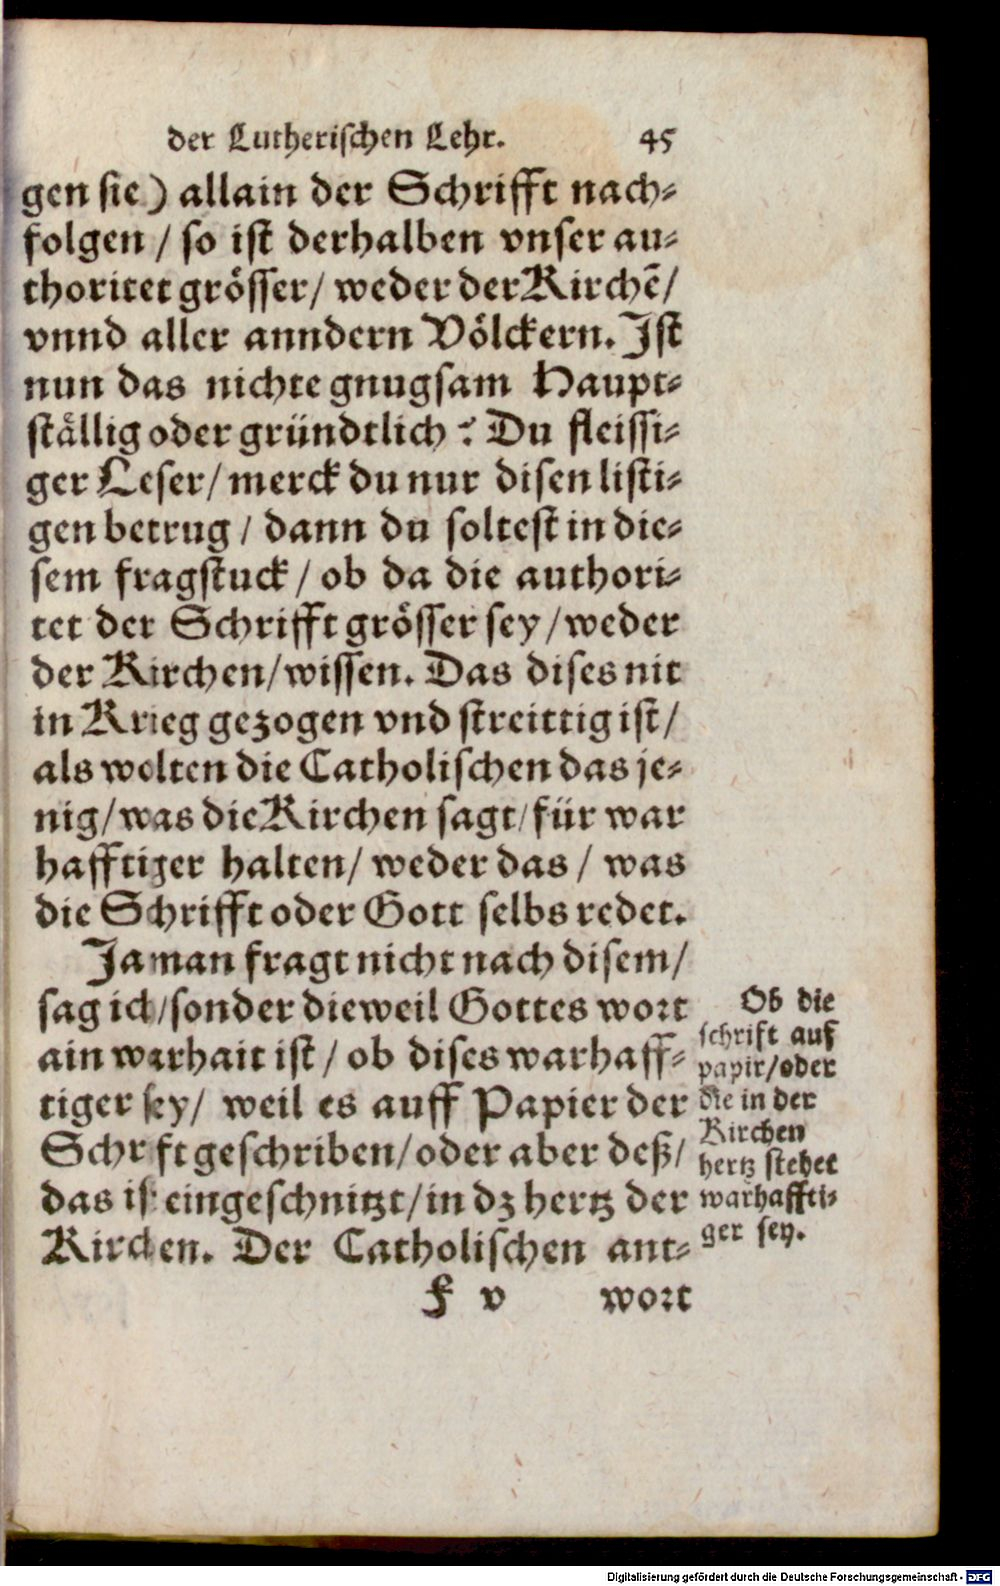 der Lutherischen Lehr. 45
gen sie) allain der Schrifft nach-
folgen / so ist derhalben vnser au-
thoritet grösser/ weder der Kirchẽ/
vnnd aller anndern Völckern. Ist
nun das nichte gnugsam Haupt-
ställig oder gründtlich? Du fleissi-
ger Leser/ merck du nur disen listi-
gen betrug / dann du soltest in die-
sem fragstuck / ob da die authori-
tet der Schrifft grösser sey / weder
der Kirchen/ wissen. Das dises nit
in Krieg gezogen vnd streittig ist/
als wolten die Catholischen das je-
nig/ was die Kirchen sagt/ für war
hafftiger halten/ weder das / was
die Schrifft oder Gott selbs redet.
Ja man fragt nicht nach disem/
sag ich/ sonder dieweil Gottes wort
ain warhait ist / ob dises warhaff-
tiger sey/ weil es auff Papier der
Schrift geschriben/ oder aber deß/
das ist eingeschnitzt/ in dz hertz der
Kirchen. Der Catholischen ant-
F v wort
Ob die
schrift auf
papir/ oder
die in der
Kirchen
hertz stehet
warhaffti-
ger sey.
Digitalisierung gefördert durch die Deutsche Forschungsgemeinschaft - DFG